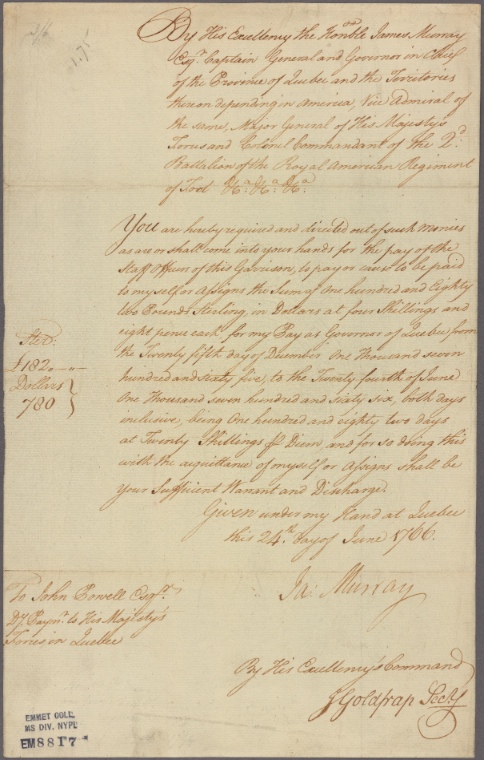 By His Excellency the Hon.ble James Murray
Esq.r Captain General and Governor in Chief
of the Province of Quebec and the Territories
thereon depending in America, Vice Admiral of
the same, Major General of His Majesty's
Forces and Colonel Commandant of the 2.d
Battalion of the Royal American Regiment
of Foot &c.a &c.a &c.a
You are hereby required and directed out of such Monies
as are or shall come into your hands for the pay of the
Staff Officers of this Garrison, to pay or cause to be paid
to myself or Assigns the Sum of One hundred and Eighty
two Pounds Sterling, in Dollars at four Shillings and
eight pence each for my Pay as Governor of Quebec, from
the Twenty fifth day of December One Thousand seven
hundred and sixty five, to the Twenty fourth of June
One Thousand seven hundred and sixty six, both days
inclusive, being One hundred and eighty two days
at Twenty Shillings ⅌ Diem, and for so doing this
with the acquittance of myself or Assigns shall be
your Sufficient Warrant and Discharge.
Ster:
£182,,—,,—
Dollars
780
Given under my Hand at Quebec
this 24.th day of June 1766.
Ja: Murray
To John Powell Esq.r
Dy. Paym.r to His Majesty's
Forces in Quebec
By His Excellency's Command
J Goldfrap Secry
EMMET COLL.
MS DIV. NYPL
EM8817